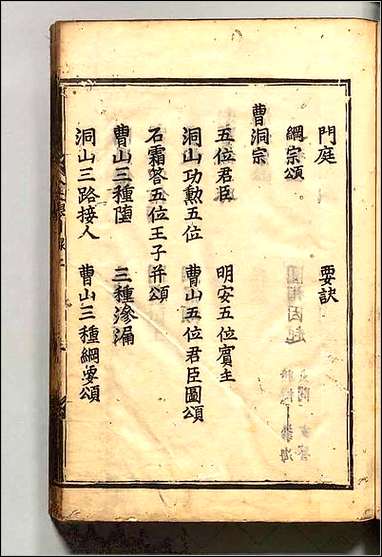 門庭 要訣
綱宗頌
曹洞宗
五位君臣 明安五位賓主
洞山功勲五位 曹山五位君臣圖頌
石霜答五位王子并頌
曹山三種墮 三種滲漏
洞山三路接人 曹山三種綱要頌